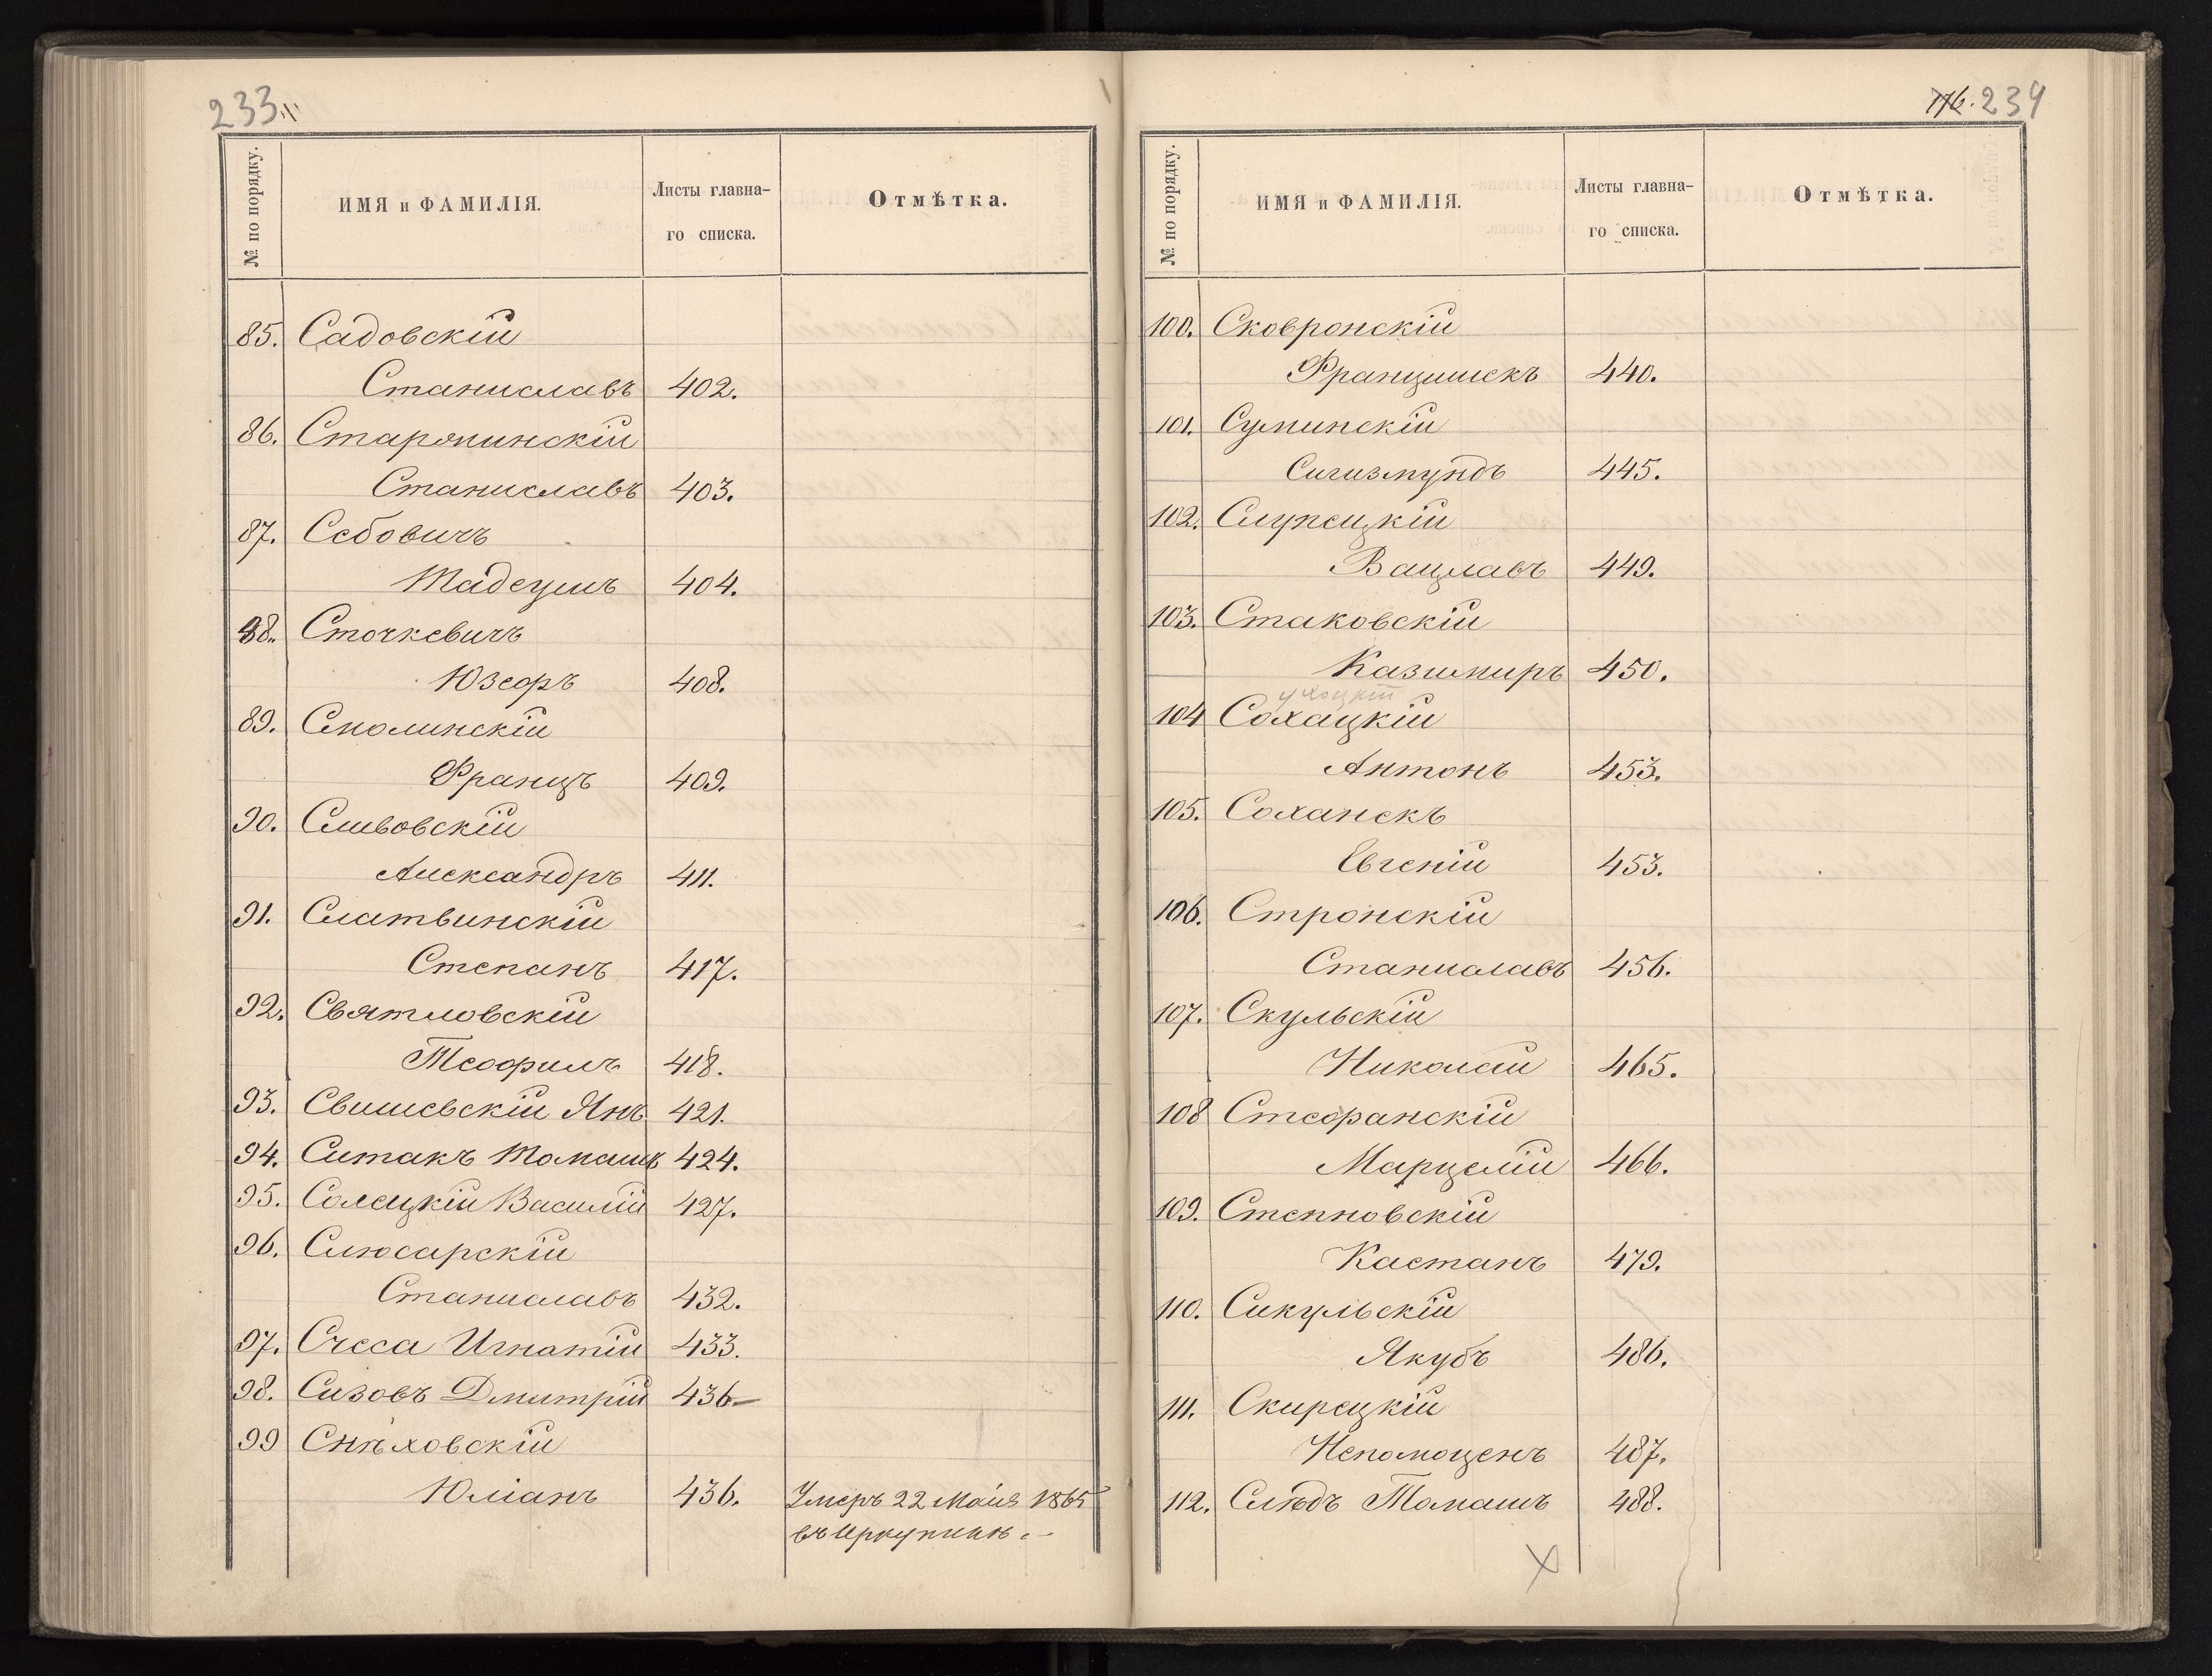 233.
№ по порядку.
ИМЯ и ФАМИЛІЯ.
Листы главна-
го списка.
Отмѣтка.
85. Садовскій
Станиславъ 402.
86. Старопинскій
Станиславъ 403.
87. Себовичъ
Тадеушъ 404.
88. Сточкевичъ
Юзефъ 408.
89. Смолинскій
Францъ 409.
90. Сливовскій
Александръ 411.
91. Слатвинскій
Степанъ 417.
92. Святловскій
Теофилъ 418.
93. Свишевскій Янъ 421.
94. Ситакъ Томашъ 424.
95. Солецкій Василій 427.
96. Слюсарскій
Станиславъ 432.
97. Счеса Игнатій 433.
98. Сизовъ Дмитрій 436
99 Снѣховскій
Юліанъ 436. Умеръ 22 Мая 1865
въ Иркутскѣ.
176. 234
№ по порядку.
ИМЯ и ФАМИЛІЯ.
Листы главна-
го списка.
Отмѣтка.
100. Сковронскій
Францишекъ 440.
101. Суминскій
Сигизмундъ 445.
102. Служецкій
Вацлавъ 449.
103. Стаковскій
Казимиръ 450.
104 Сохацкій
Антонъ 453.
105. Соханекъ
Евгеній 453.
106. Стронскій
Станиславъ 456.
107. Скульскій
Николай 465.
108 Стефранскій
Марцелій 466.
109. Степновскій
Каетанъ 479.
110. Сикульскій
Якубъ 486.
111. Скирецкій
Непомоценъ 487.
112. Слѣдъ Томашъ 488.